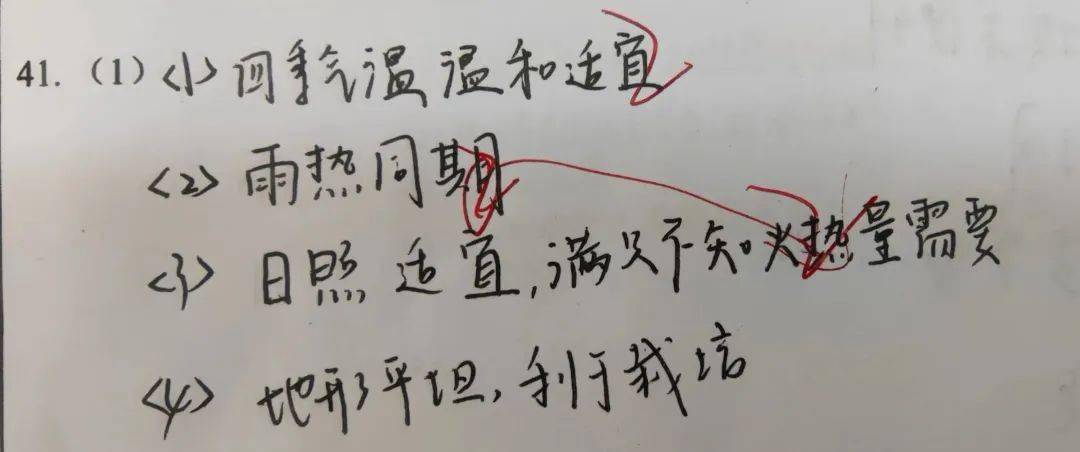 41. (1) <1> 四季气温温和适宜
<2> 雨热同期
<3> 日照适宜,满只不知火热量需要
<4> 地形平坦,利于栽培